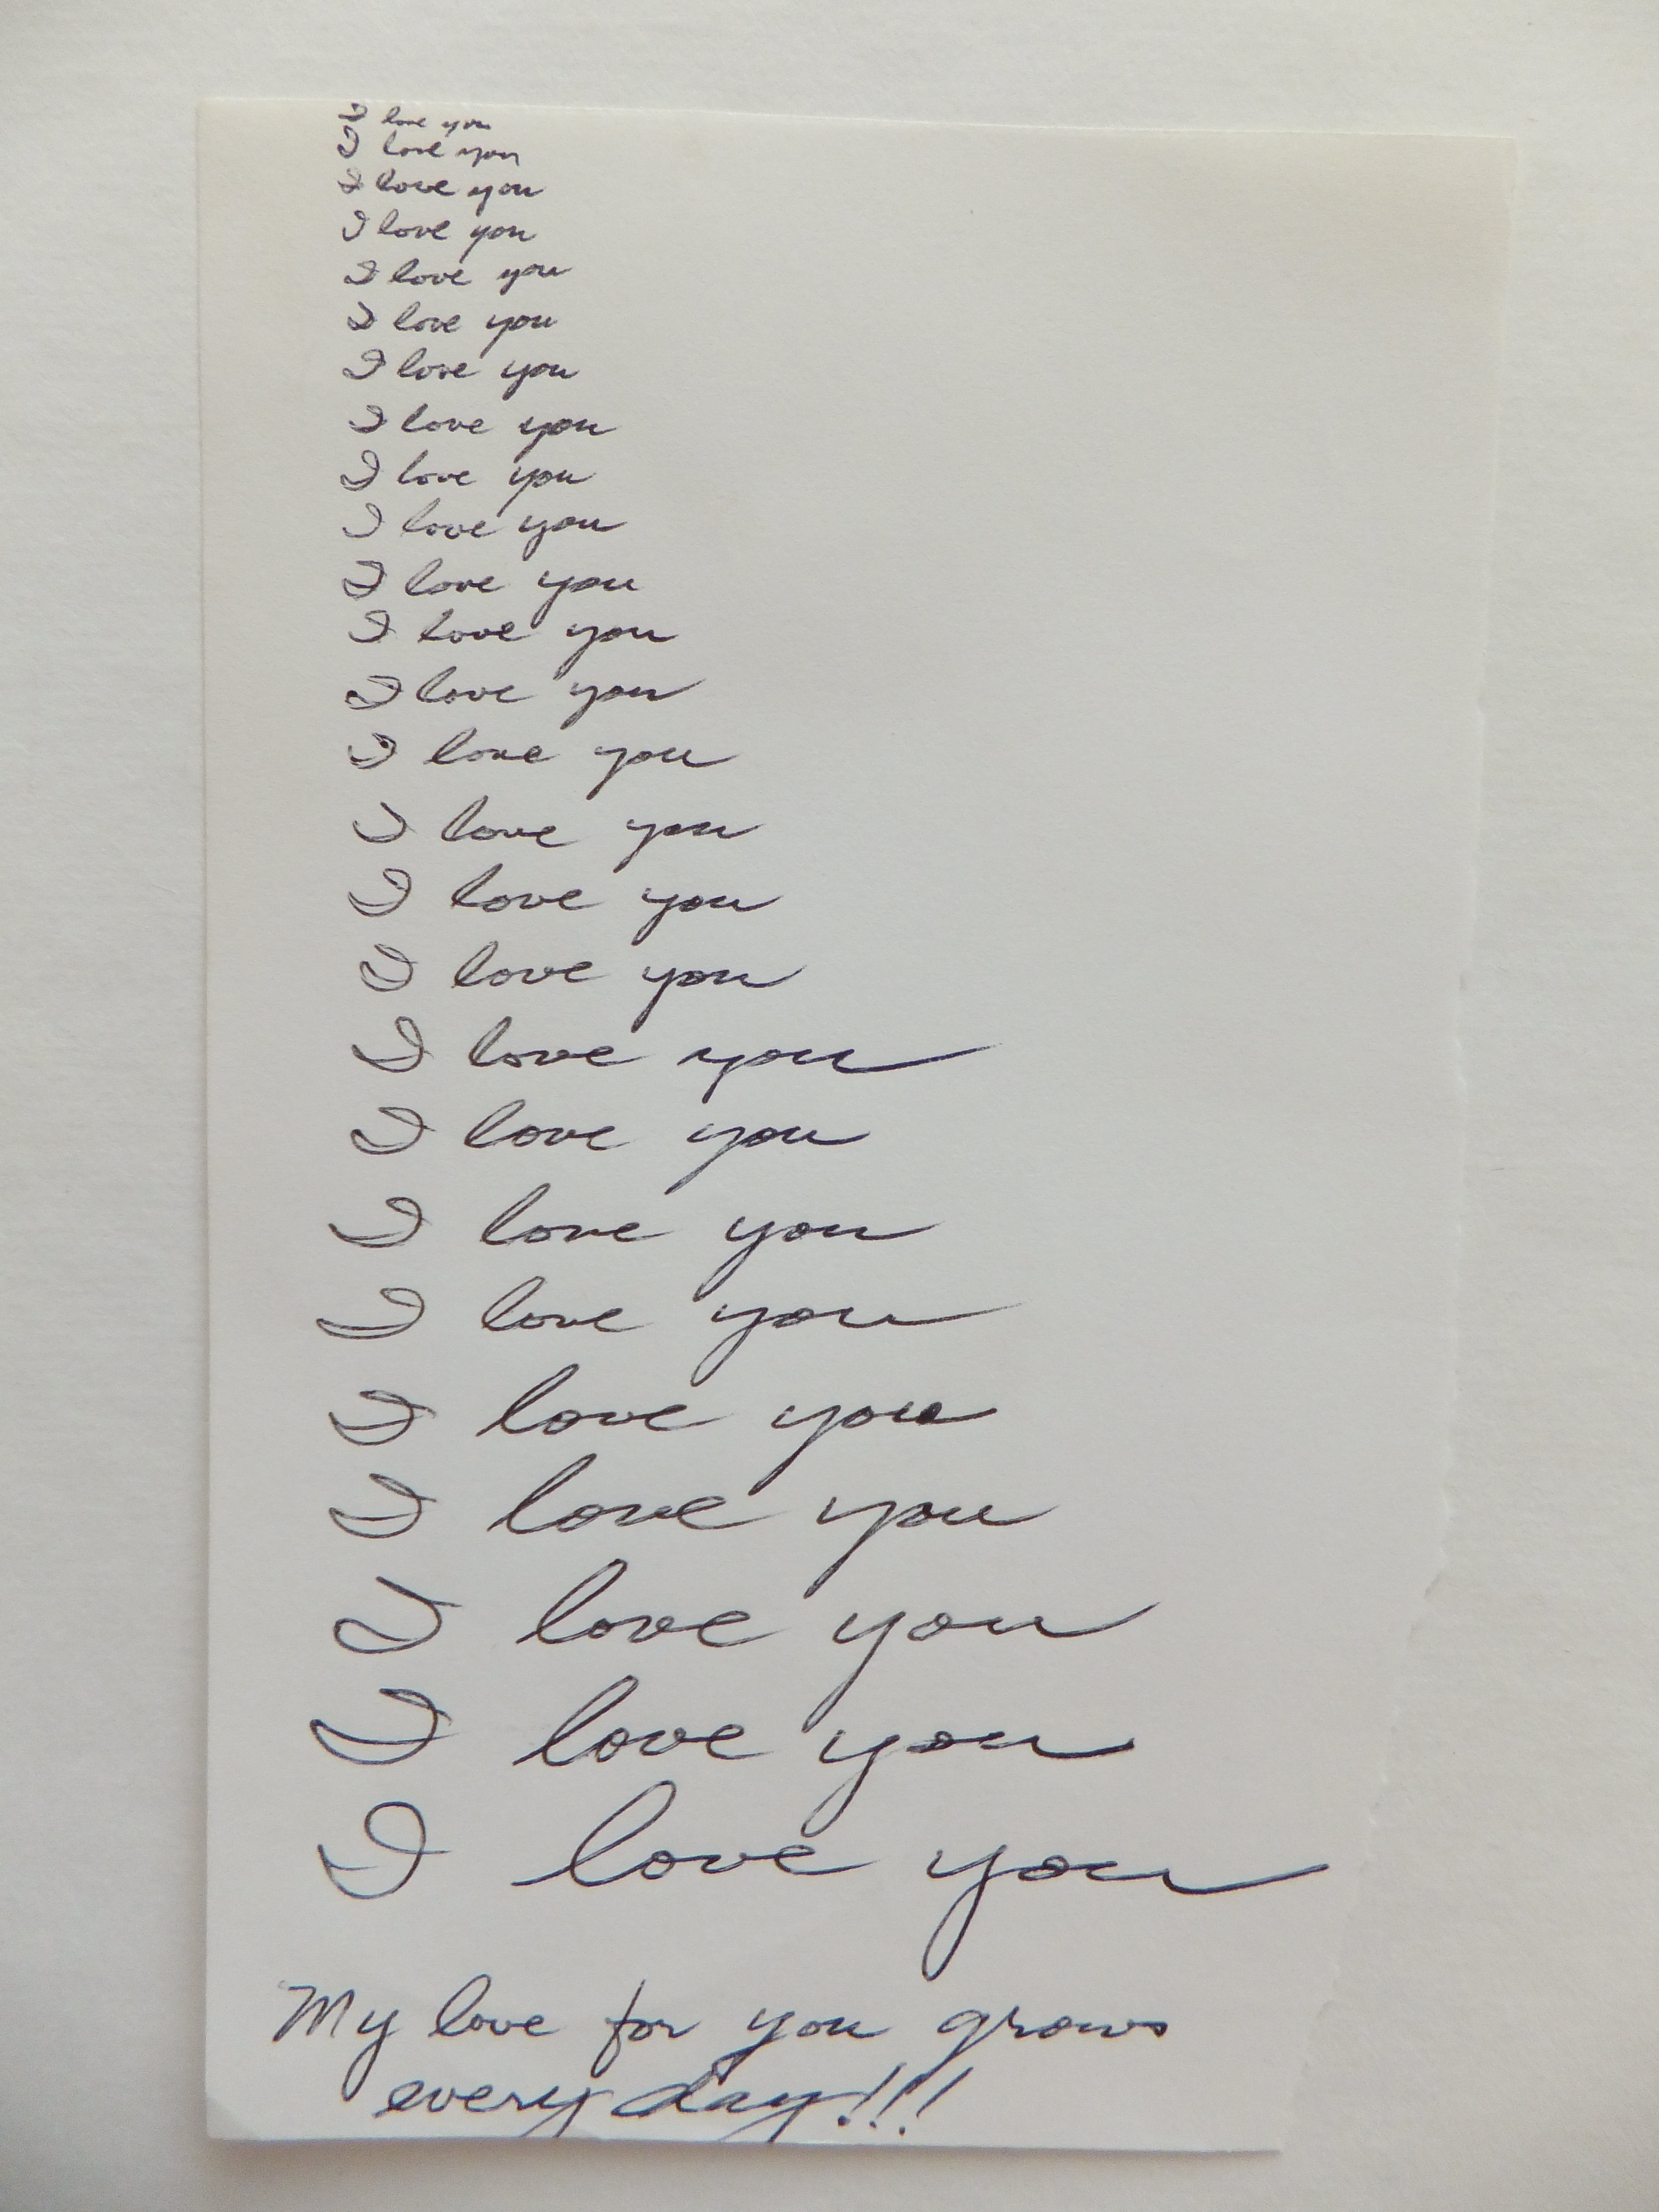 I love you
I love you
I love you
I love you
I love you
I love you
I love you
I love you
I love you
I love you
I love you
I love you
I love you
I love you
I love you
I love you
I love you
I love you
I love you
I love you
I love you
I love you
I love you
I love you
I love you
I love you
My love for you grows
every day!!!